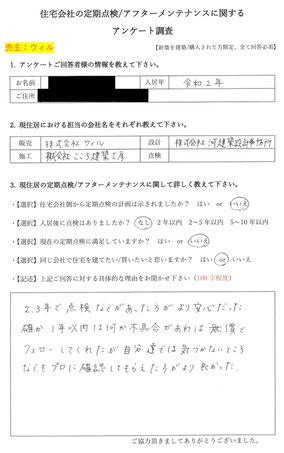 住宅会社の定期点検/アフターメンテナンスに関する
アンケート調査
売主：ウィル
【新築を建築/購入された方限定、全て回答必須】
1. アンケートご回答者様の情報を教えて下さい。
お名前 入居年 令和2年
ご住所
2. 現住居における担当の会社名をそれぞれ教えて下さい。
販売 株式会社ウィル 設計 株式会社河建築設計事務所
施工 株式会社こころ建築工房 点検
3. 現住居の定期点検/アフターメンテナンスに関して詳しく教えて下さい。
・【選択】住宅会社側から定期点検の計画は示されましたか？ はい or いいえ
・【選択】入居後に点検はありましたか？ なし 2年以内 2～5年以内 5～10年以内
・【選択】現在の定期点検に満足していますか？ はい or いいえ
・【選択】同じ会社で住宅を建てたい/買いたいと思いますか？ はい or いいえ
・【記述】上記ご回答に対する具体的な理由をお聞かせ下さい（100字程度）
2.3年で点検などがあったほうがより安心だった.
確か1年以内は何か不具合があれば無償で
フォローしてくれたが自分達では気づかないところ
などもプロに確認してもらえたほうがより良かった.
ご協力頂きましてありがとうございました。